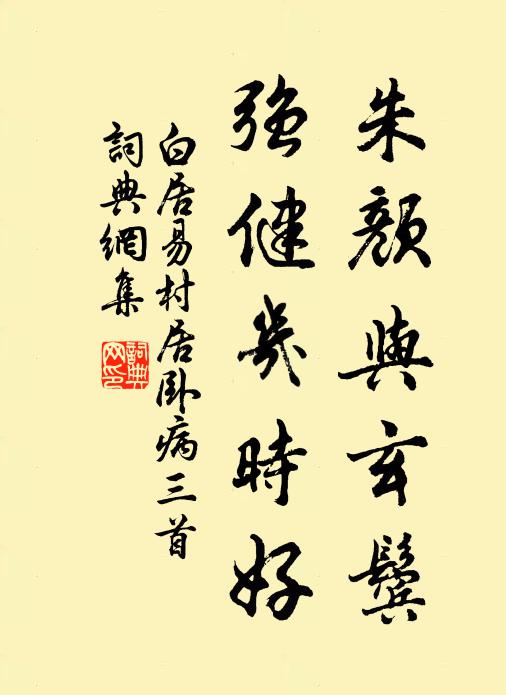 朱顏與玄鬢
強健幾時好
白居易村居臥病三首
詞典網集
詞典網印